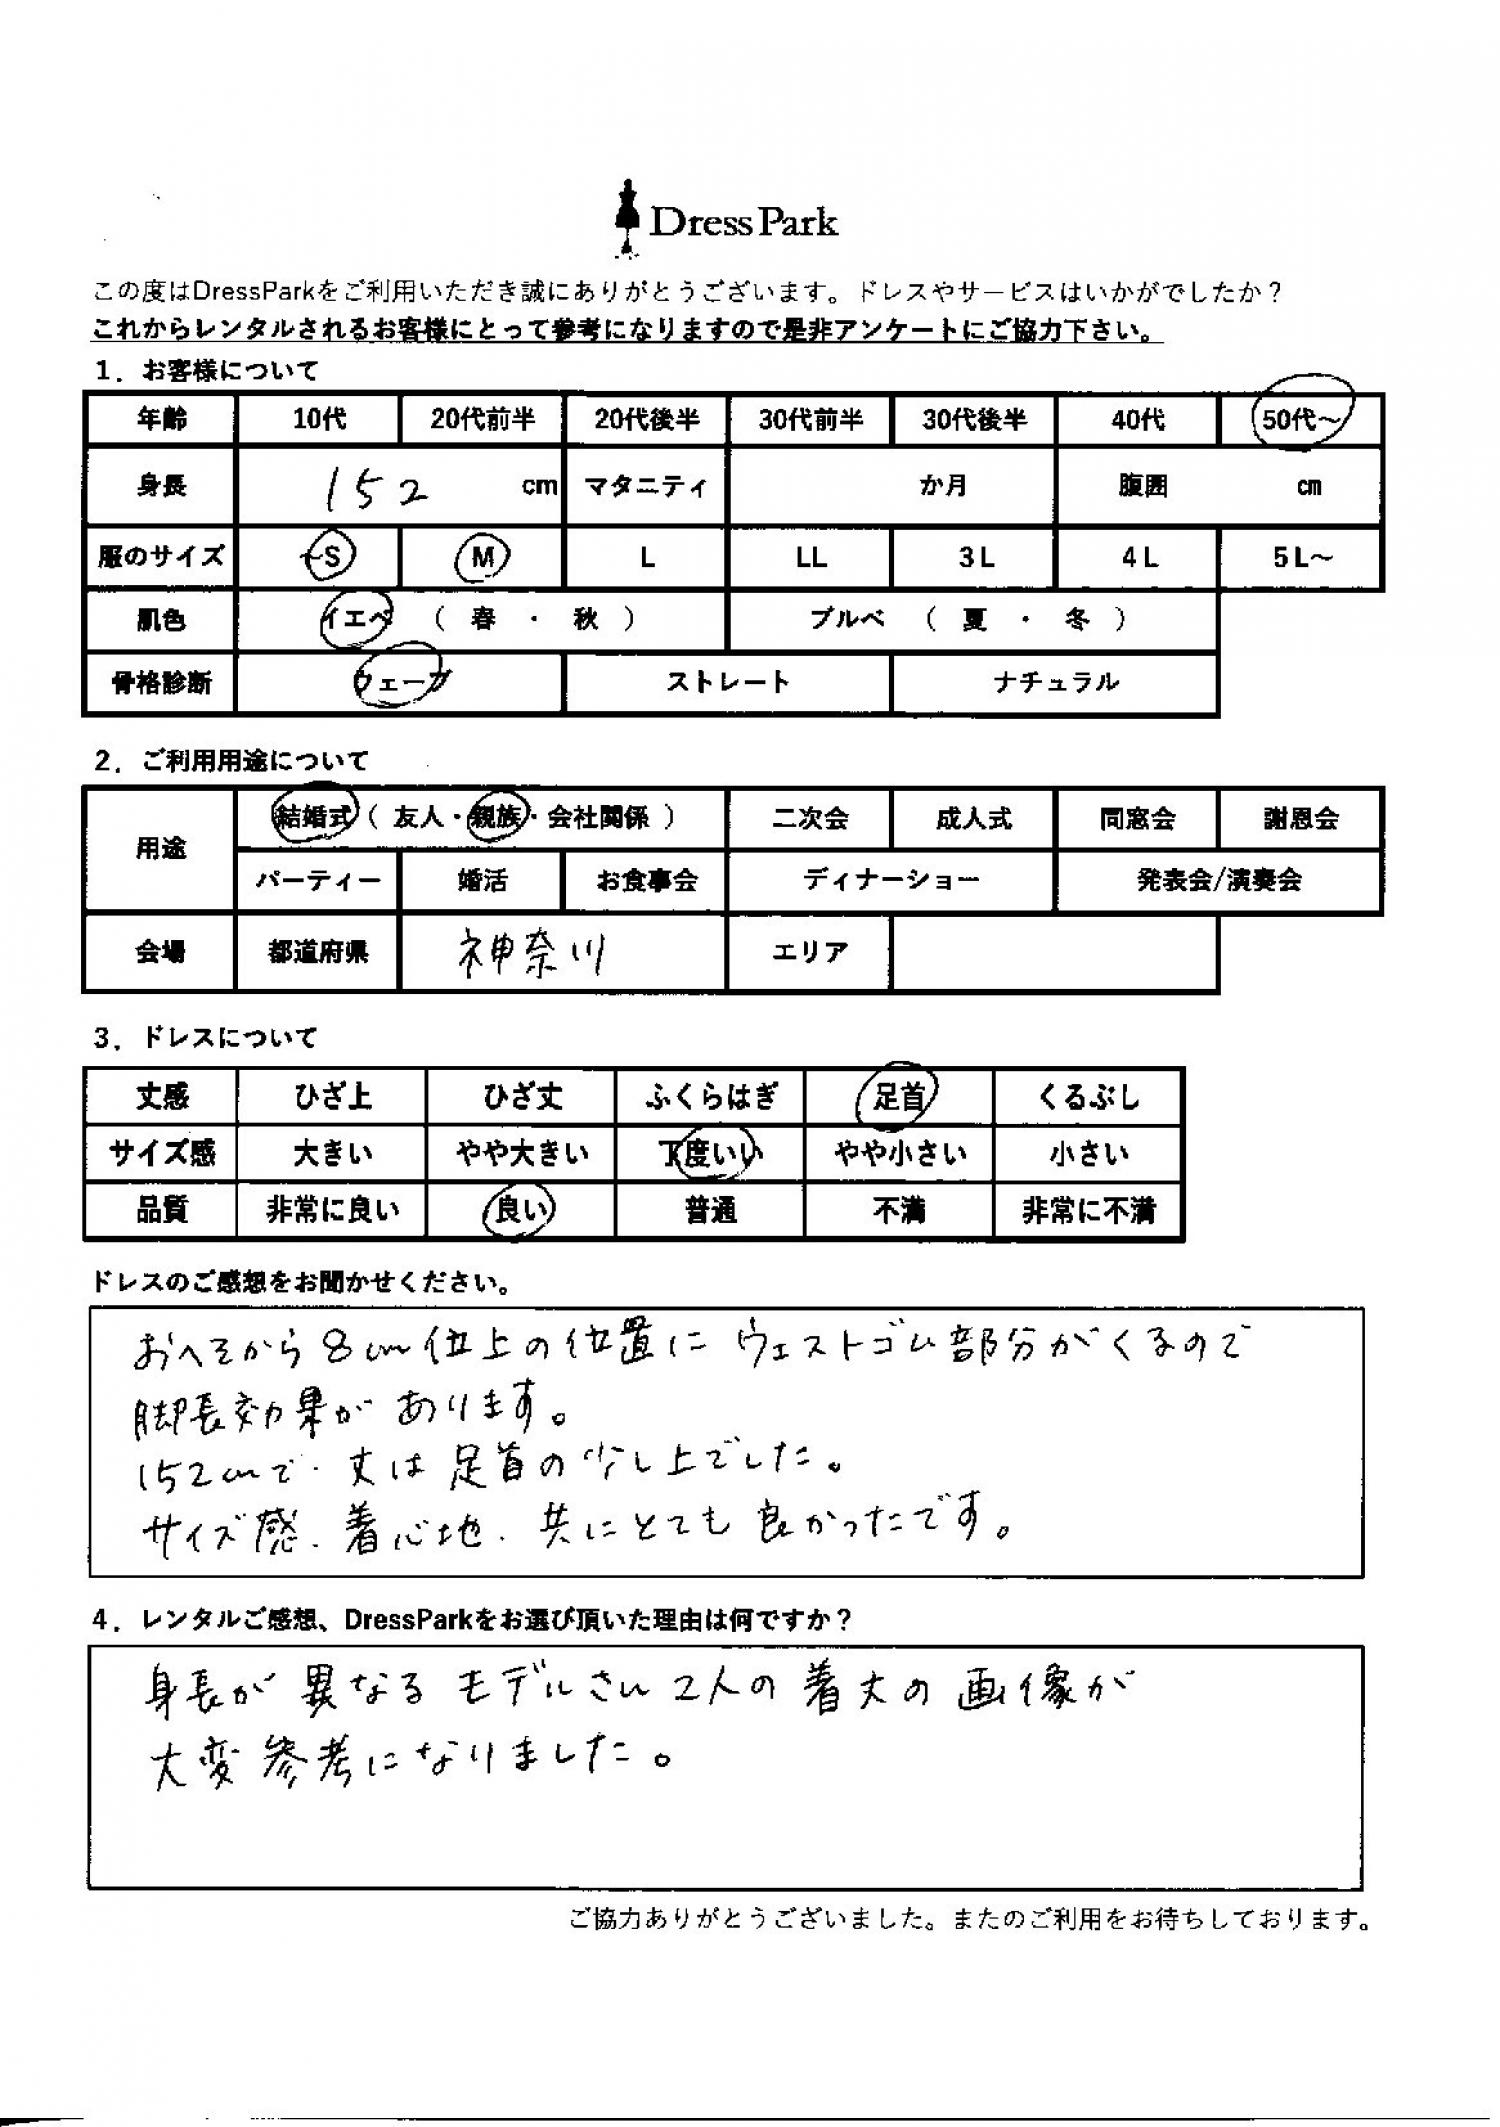 DressPark
この度はDressParkをご利用いただき誠にありがとうございます。ドレスやサービスはいかがでしたか？
これからレンタルされるお客様にとって参考になりますので是非アンケートにご協力下さい。
1．お客様について
年齢 10代 20代前半 20代後半 30代前半 30代後半 40代 50代～
身長 152 cm マタニティ か月 腹囲 cm
服のサイズ ～S M L LL 3L 4L 5L～
肌色 イエベ （ 春 ・ 秋 ） ブルベ （ 夏 ・ 冬 ）
骨格診断 ウェーブ ストレート ナチュラル
2．ご利用用途について
用途 結婚式（ 友人・親族・会社関係 ） 二次会 成人式 同窓会 謝恩会
パーティー 婚活 お食事会 ディナーショー 発表会/演奏会
会場 都道府県 神奈川 エリア
3．ドレスについて
丈感 ひざ上 ひざ丈 ふくらはぎ 足首 くるぶし
サイズ感 大きい やや大きい 丁度いい やや小さい 小さい
品質 非常に良い 良い 普通 不満 非常に不満
ドレスのご感想をお聞かせください。
おへそから8cm位上の位置にウェストゴム部分がくるので
脚長効果があります。
152cmで、丈は足首の少し上でした。
サイズ感、着心地、共にとても良かったです。
4．レンタルご感想、DressParkをお選び頂いた理由は何ですか？
身長が異なるモデルさん2人の着丈の画像が
大変参考になりました。
ご協力ありがとうございました。またのご利用をお待ちしております。